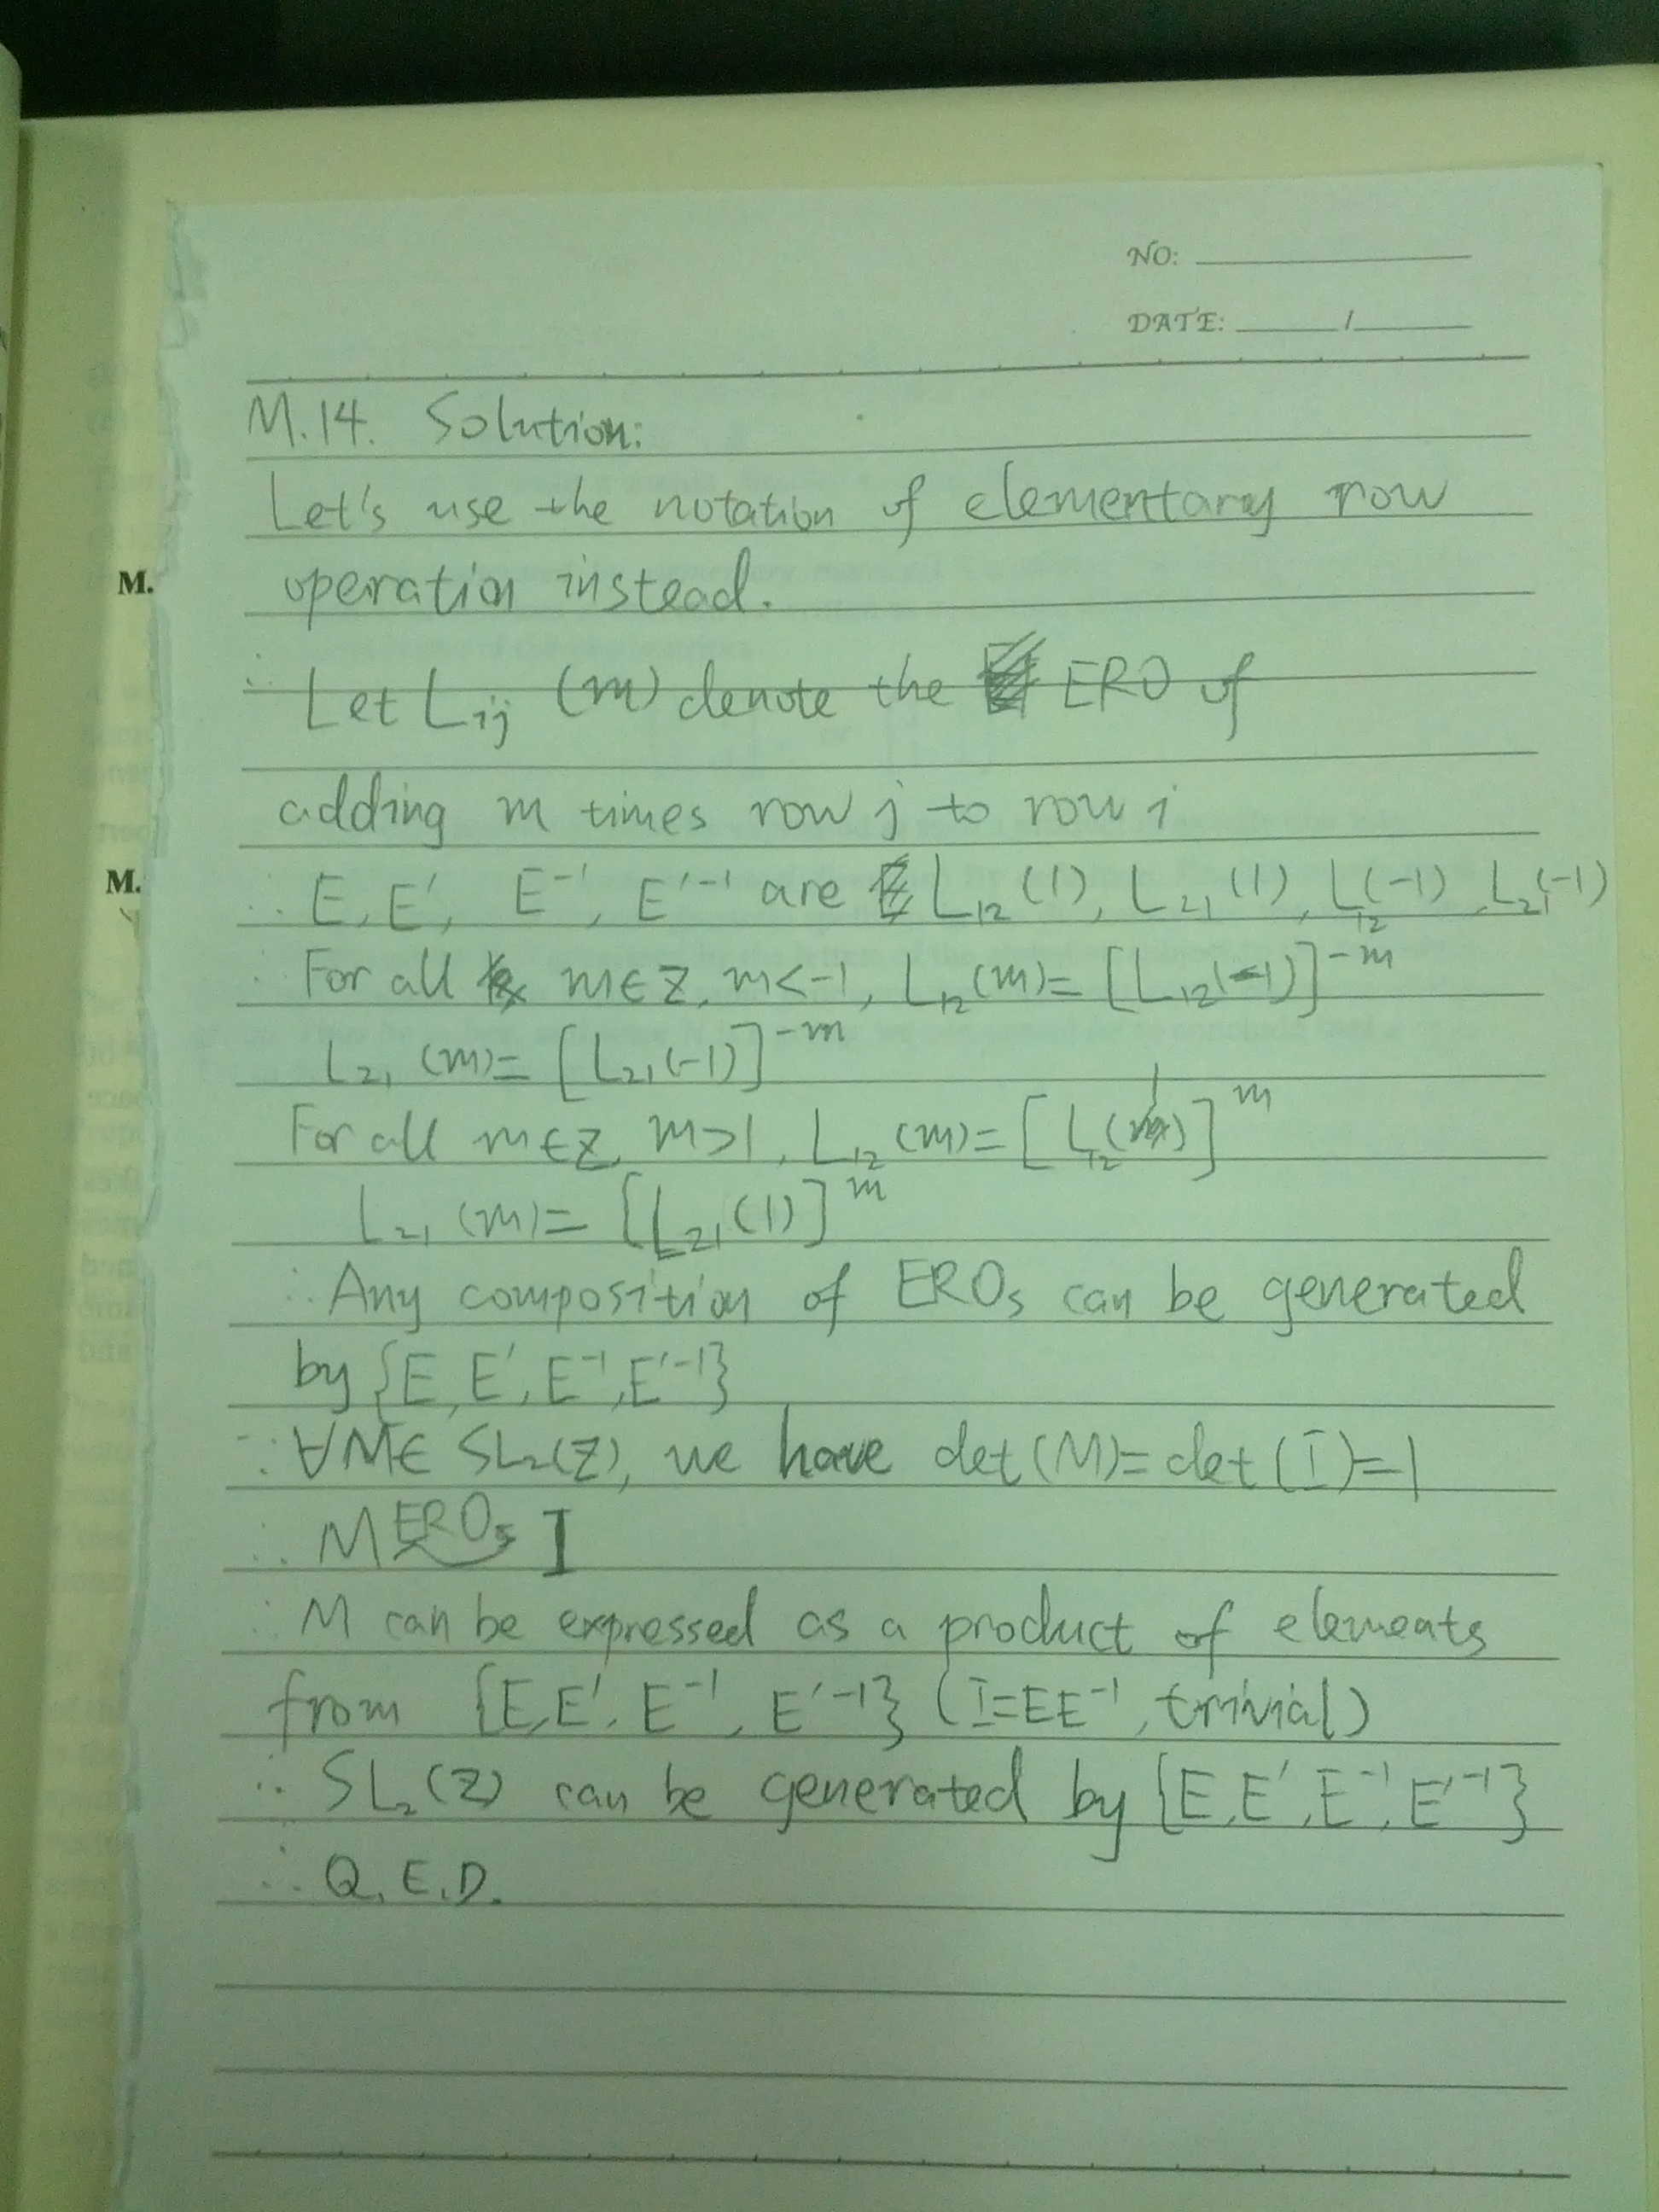 NO:
DATE: /
M.14. Solution:
Let's use the notation of elementary row
operation instead.
∴ Let Lij (m) denote the ERO of
M.
adding m times row j to row i
M.
∴ E, E', E⁻¹, E'⁻¹ are L₁₂(1), L₂₁(1), L₁₂(-1), L₂₁(-1)
∴ For all m∈Z, m<-1, L₁₂(m)=[L₁₂(-1)]⁻ᵐ
L₂₁(m)=[L₂₁(-1)]⁻ᵐ
For all m∈Z, m>1, L₁₂(m)=[L₁₂(1)]ᵐ
L₂₁(m)=[L₂₁(1)]ᵐ
∴ Any composition of EROs can be generated
by {E, E', E⁻¹, E'⁻¹}
∵ ∀M∈ SL₂(Z), we have det(M)=det(I)=1
∴ M EROs→ I
∴ M can be expressed as a product of elements
from {E,E', E⁻¹, E'⁻¹} (I=EE⁻¹, trivial)
∴ SL₂(Z) can be generated by {E,E',E⁻¹,E'⁻¹}
∴ Q.E.D.